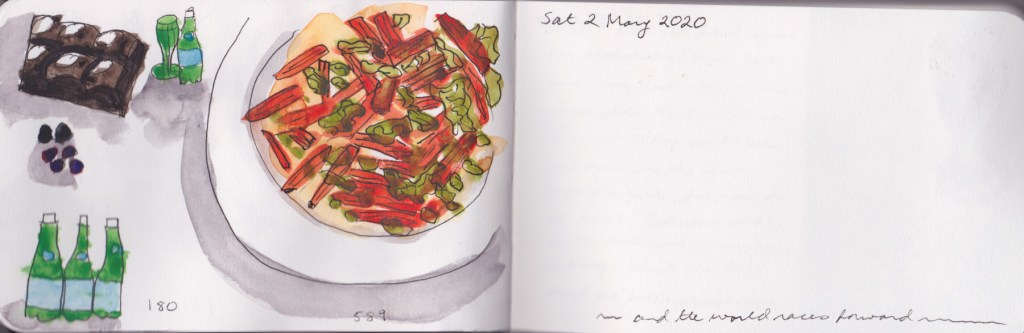 180
589
Sat 2 May 2020
and the world races forward